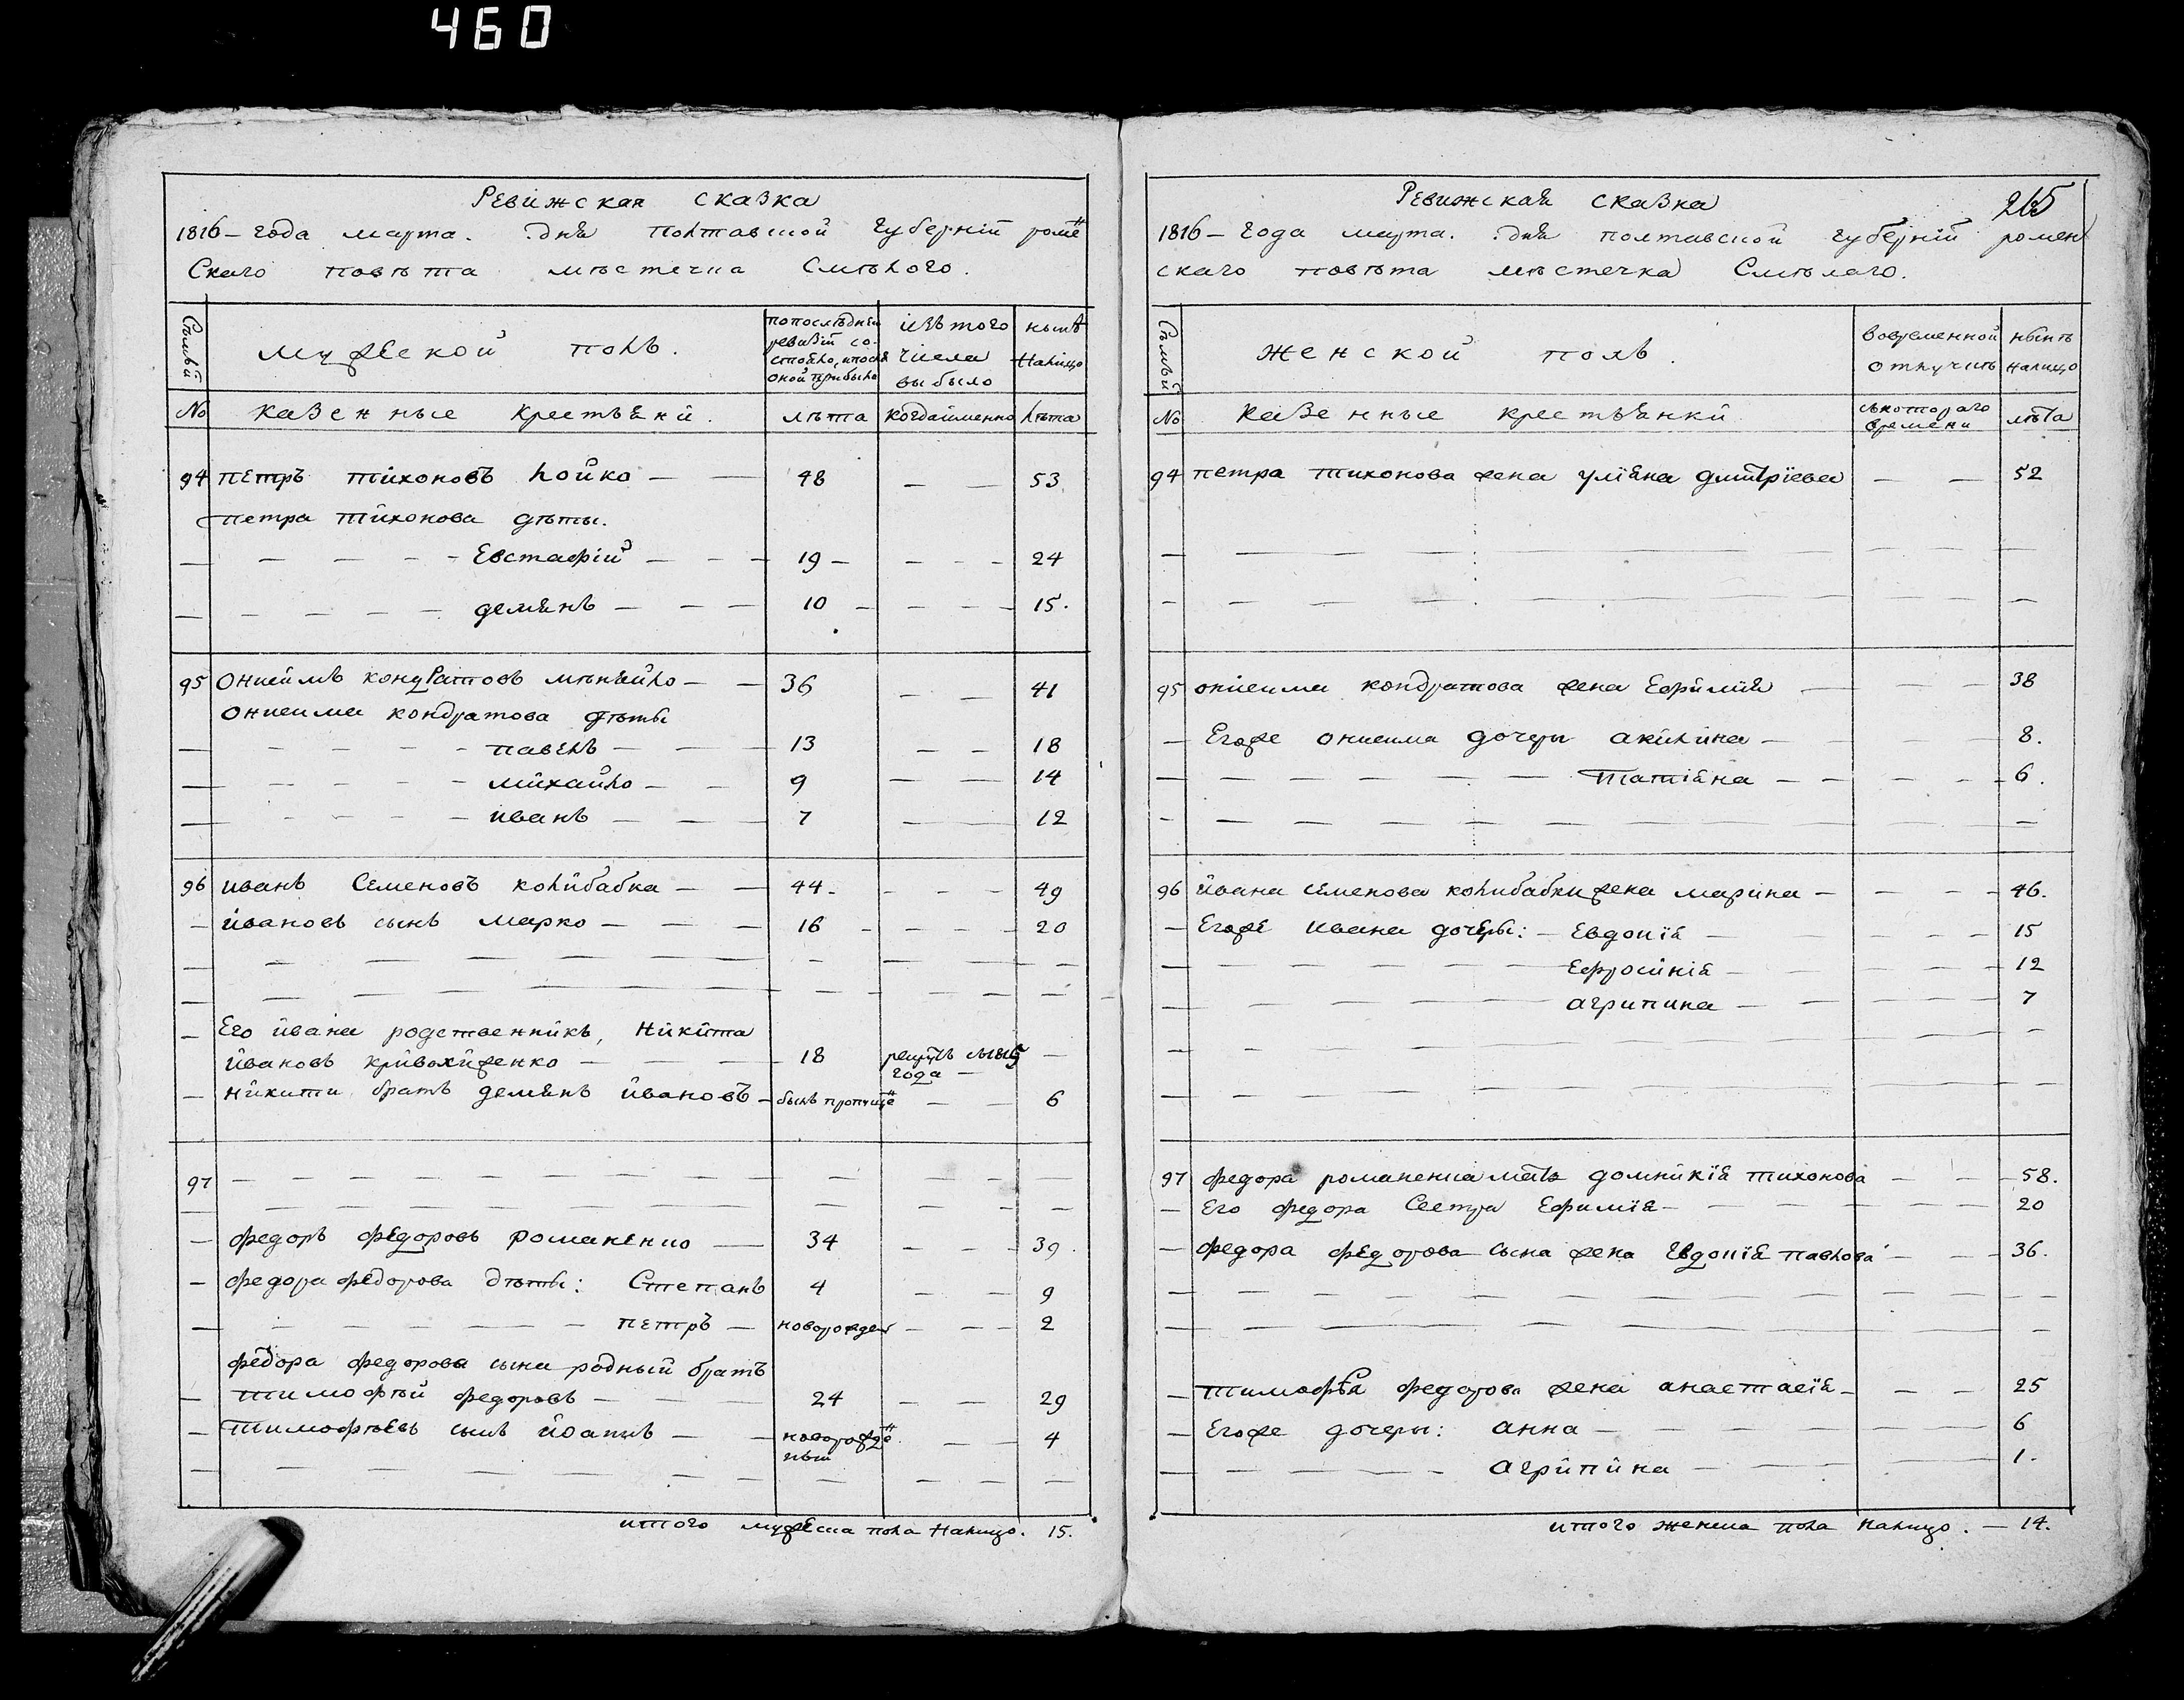 460
Ревижская сказка
1816 – года марта. дня полтавской губерній роме<sup>н</sup>
Скаго повѣта мѣстечка Смѣлого.
Сѣмьи
мужеской полъ.
попослѣдней ревизіи состояло, ипослѣ оной прибыло
изъ того числа выбыло
нынѣ Налицо
No
казенные крестьяни.
лѣта
когдаимменно
лѣта
94 петръ тихоновъ лойко — — 48 — — 53
петра тихонова дѣты.
— Евстафій — 19 — 24
— демянъ — 10 — 15.
95 Онисимъ кондратовъ — — 36 — — 41
Онисима кондратова дѣты
— павелъ — 13 — — 18
— михайло — 9 — — 14
— иванъ — 7 — — 12
96 иванъ Семеновъ колибабка — — 44 — 49
— ивановъ сынъ марко — 16 — 20
— Его ивана родственникъ, Никита
ивановъ кривохиженко — 18 года —
— никити братъ демянъ ивановъ — былъ пропуще<sup>н</sup> — — 6
97
— федоръ федоровъ романенко — 34 — — 39
— федора федорова дѣты: Степанъ 4 — — 9
— петръ — новорожден — — 2
федора федорова сына родный братъ
— тимофѣй федоровъ — 24 — — 29
— Тимофѣевъ сынъ — новорожде<sup>н</sup>ный — — 4
итого мужеска пола Налицо. 15.
Ревижская сказка
265
1816 – года марта. дня полтавской губерній ромен
скаго повѣта мѣстечка Смѣлаго.
Сѣмьи
женской полъ.
вовременной отлучить
нынѣ налицо
No
казенные крестьянки
съкотораго времени
лѣта
94 петра тихонова жена уліяна дмитріева — — 52
95 онисима кондратова жена Ефимия — — 38
— Егоже онисима дочеры акилина — 8.
— татіяна — 6.
96 ивана семенова колибабки жена марина — 46.
— Егоже ивана дочеры: — Евдокія — 15
— Ефросинія — 12
— агрипина — 7
97 федора романенка мать домникія тихонова — — 58.
— Его федора Сестра Ефимія — 20
— федора федорова сына жена Евдокія павлова — 36.
— тимофѣя федорова жена анастасія — 25
— Егоже дочеры: анна — 6
— агрипина — 1.
итого женска пола налицо. — 14.